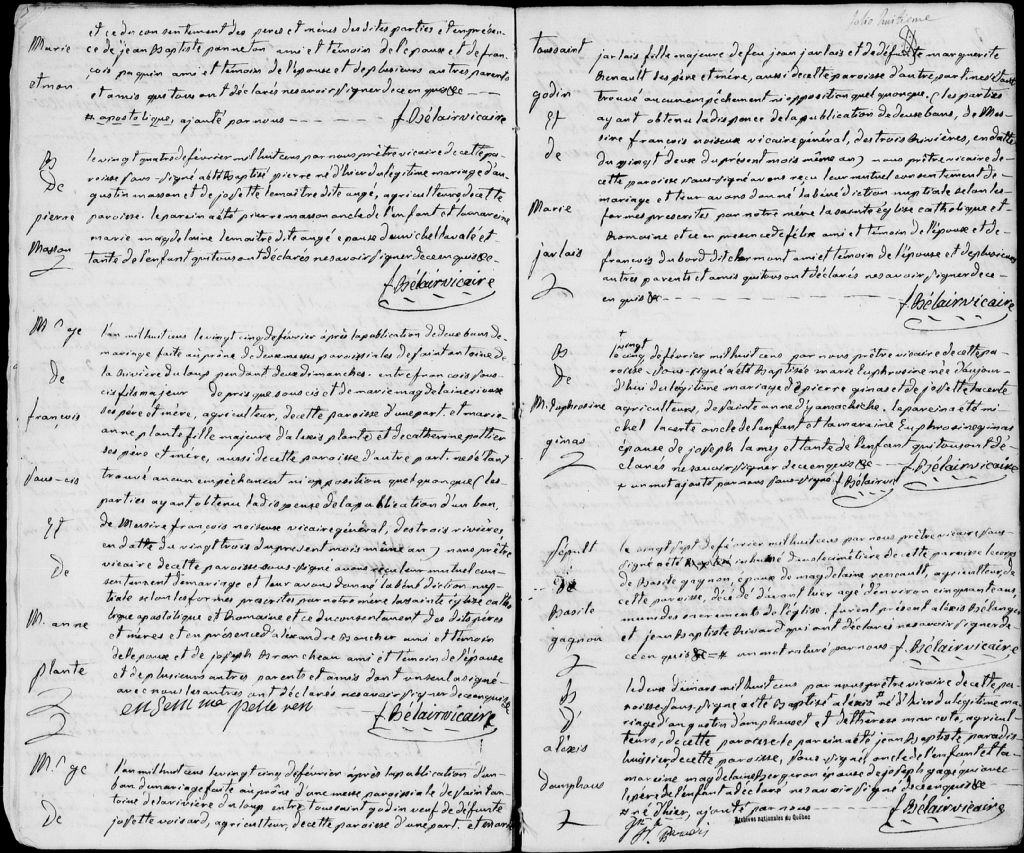 et ce du consentement des peres et mères des dites parties et en présen-
Marie ce de jean Baptiste panneton ami et témoin de l'epoux et de fran-
çois paquin ami et témoin de l'épouse et de plusieurs autres parents
etmon et amis qui tous ont déclarés ne savoir signer de ce enquis
# apostolique, ajouté par nous f Bélair vicaire
B le vingt quatre de février mil huit cens par nous prêtre vicaire de cette pa-
De roisse sous-signé a été Baptisé pierre né d'hier du légitime mariage d'au-
gustin masson et de josette lemaître dite augé, agriculteurs, de cette
pierre paroisse. le parein a été pierre masson oncle de l'enfant et la mareine
Masson marie magdelaine lemaitre dite augé epouse de michel lavalé et
tante de l'enfant qui tous ont déclarés ne savoir signer de ce enquis
f Bélair vicaire
M.r ge l'an mil huit cens le vingt cinq de février après la publication de deux bans de
mariage faite au prône de deux messes paroissiales de saint antoine de
De la Rivière du loup pendant deux dimanches. entre françois sous-
cis fils majeur de pris que sous cis et de marie magdelaine
françois ses père et mère, agriculteur, de cette paroisse d'une part. et marie
anne plante fille majeure d'alexis plante et de catherine peltier
ses père et mère, aussi de cette paroisse d'autre part ne s'étant
Sous-cis trouvé aucun empêchement ni opposition quelquonque (les
parties ayant obtenu la dispense de la publication d'un ban,
Et de Messire françois noiseux vicaire général, des trois rivières,
en datte du vingt trois du présent mois même an) nous prêtre
De vicaire de cette paroisse sous-signé avons reçu leur mutuel con-
sentement de mariage et leur avons donné la bénédiction nup-
tiale selon les formes prescrites par notre mère la sainte église catho
M. anne lique apostolique et Romaine et ce du consentement des dits pères
et mères et en présence d'alexandre Boucher ami et témoin
de l'epoux et de joseph Brancheau ami et témoin de l'épouse
plante et de plusieurs autres parents et amis dont un seul a signé
avec nous les autres ont déclarés ne savoir signer de ce enquis
f Bélair vicaire
M.r ge l'an mil huit cens le vingt cinq de février après la publication d'un
ban de mariage faite au prône d'une messe paroissiale de saint an-
toine de la rivière du loup entre toussaint godin veuf de défunte
De josette voisard, agriculteur, de cette paroisse d'une part. et marie
folio huitieme
toussaint jarlais fille majeure de feu jean jarlais et de défunte marguerite
Renault ses père et mère, aussi de cette paroisse d'autre part. ne s'étant
godin trouvé aucun empêchement ni opposition quelquonque, (les parties
Et ayant obtenu la dispence de la publication de deux bans, de Mes-
sire françois noiseux vicaire général, des trois Rivières, en datte
de du vingt deux du présent mois même an) nous prêtre vicaire de
cette paroisse sous-signé avons reçu leur mutuel consentement de
Marie mariage et leur avons donné la bénédiction nuptiale selon les
formes prescrites par notre mère la sainte église catholique et
Romaine et ce en presence de félix ami et témoin de l'époux et de
jarlais françois du bord dit clermont ami et témoin de l'épouse et de plusieurs
autres parents et amis qui tous ont déclarés ne savoir signer de ce
en quis f Bélair vicaire
vingt
B le cinq de février mil huit cens par nous prêtre vicaire de cette pa-
De roisse sous-signé a été Baptisée marie Euphrosine née d'aujour-
d'hui du légitime mariage de pierre ginas et de josette lacerte
M. euphrosine agriculteurs, de sainte anne d'yamachiche. le parein a été mi-
chel lacerte oncle de l'enfant et la maraine Euphrosine ginas
ginas épouse de joseph lamy et tante de l'enfant qui tous ont dé-
clarés ne savoir signer de ce enquis f Bélair vicaire
+ un mot ajouté par nous sous-signé f Bélair v.
Sépult le vingt sept de février mil huit cens par nous prêtre vicaire sous-
signé a été inhumé dans le cimetière de cette paroisse le corps
De de Basile gagnon, epoux de magdelaine renault, agriculteur, de
cette paroisse, décédé d'avant hier agé d'environ cinquante ans,
Basile muni des sacrements de l'église. furent présent alexis Bélanger
gagnon et jean Baptiste Rivard qui ont déclarés ne savoir signer de
ce en quis # un mot relevé par nous f Bélair vicaire
B le deux de mars mil huit cens par nous prêtre vicaire de cette pa-
roisse sous-signé a été Baptisé alexis # né d'hier du légitime ma-
D' riage d'augustin dauphaus et de therese marcote, agricul-
alexis teurs, de cette paroisse le parein a été jean Baptiste paradis
huissier de cette paroisse, sous-signé, oncle de l'enfant et la
dauphaus mareine magdelaine Bergeron épouse de joseph gagé qui avec
le père de l'enfant a déclaré ne savoir signer de ce enquis
# né d'hier, ajouté par nous f Bélair vicaire
Archives nationales du Québec